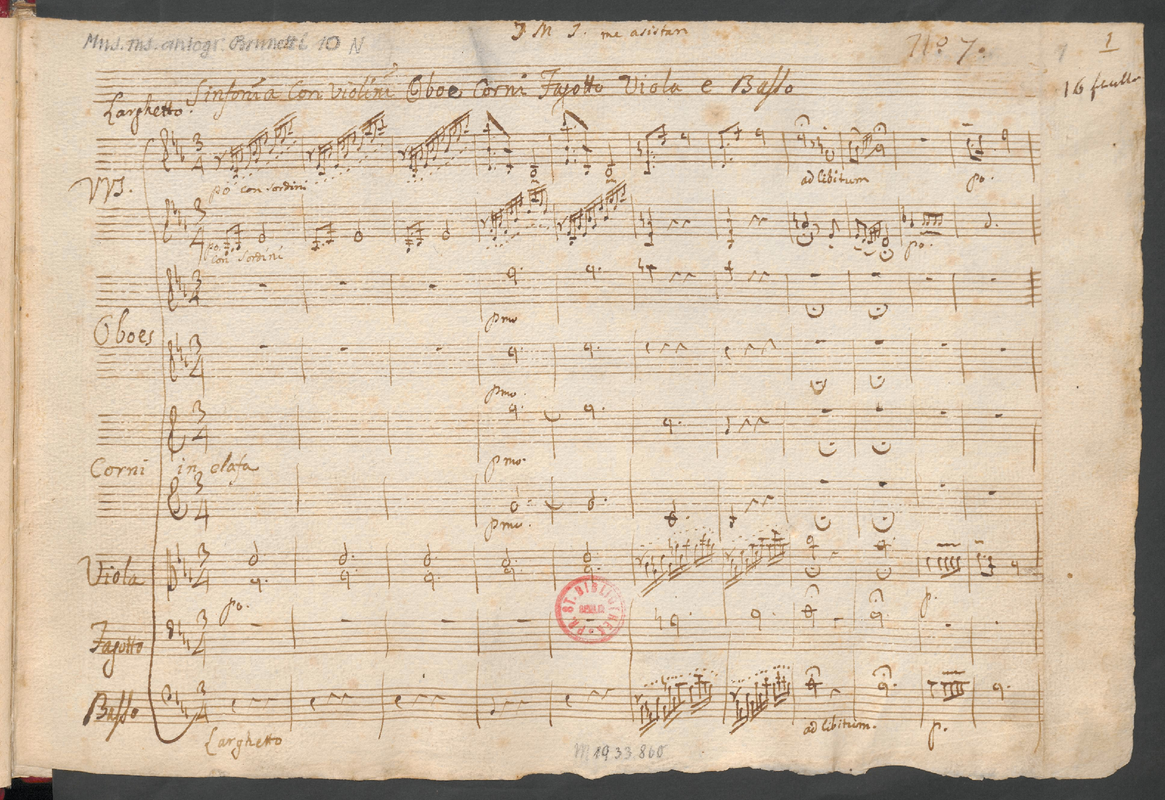 Mus. ms. autogr. Brunetti 10 N
J M J. me asistan
No. 7.
1
16 feuilles
Sinfonia Con Violini Oboe Corni Fagotto Viola e Basso
Larghetto.
VVS.
po con sordini
ad libitum
po.
po.
con sordini
po.
Oboes
pmo
pmo.
Corni in elafa
pmo.
pmo.
Viola
po.
p.
PR. ST. BIBLIOTHEK BERLIN
Fagotto
Basso
Larghetto
ad libitum.
p.
M 1933.860